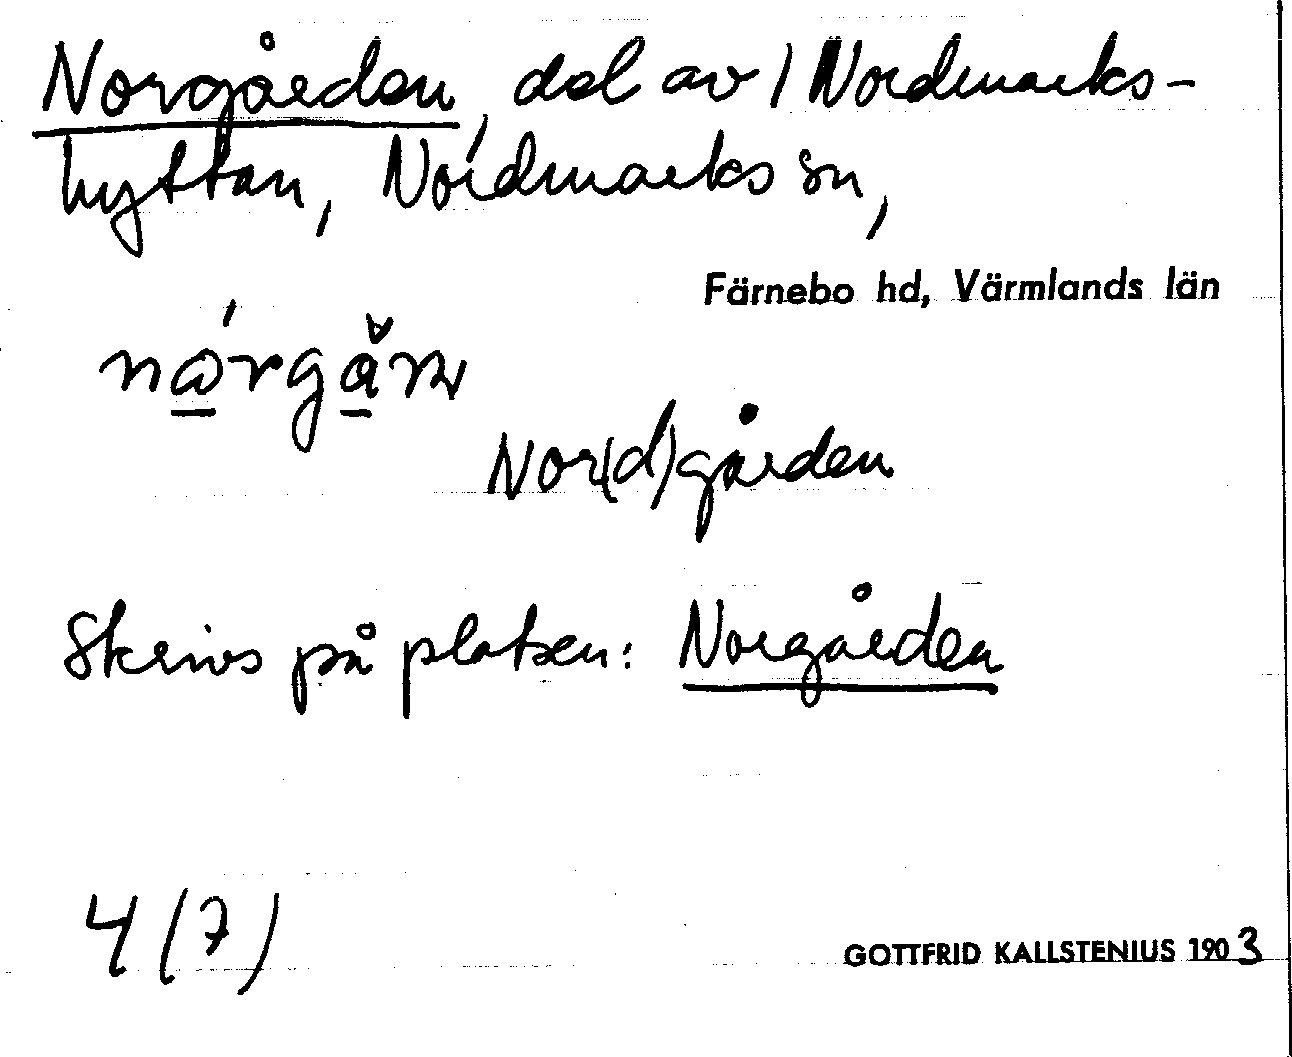 Norgården, del av / Nordmarks-
hyttan, Nordmarks sn,
Färnebo hd, Värmlands län
Nor(d)gården
Skrivs på platsen: Norgården
4 (7)
GOTTFRID KALLSTENIUS 1903